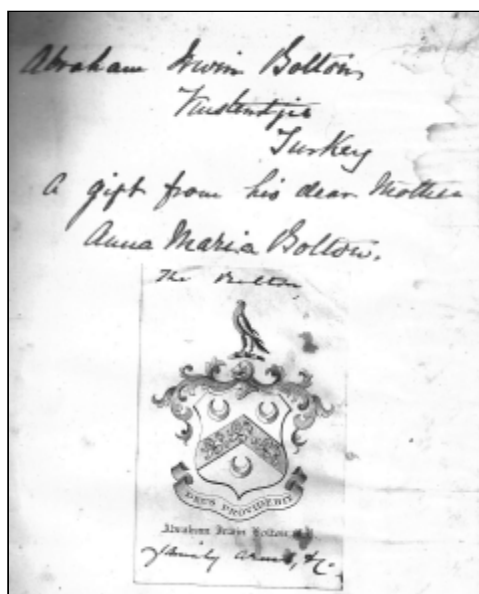 Abraham Irwin Bolton,
Kustendjie
Turkey
A gift from his dear Mother
Anna Maria Bolton.
The Bolton
DEUS PROVIDEBIT
Abraham Irwin Bolton
family arms, &c.